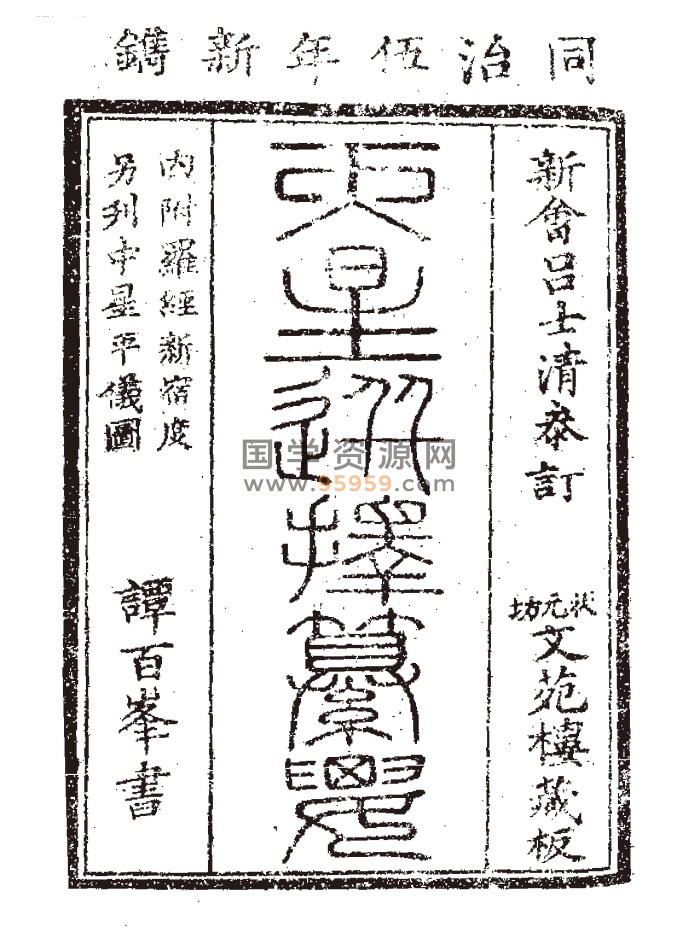 同治伍年新鐫
新會呂士清叅訂
狀元坊
文苑樓藏板
天星選擇纂要
內附羅經新宿度
另列中星平儀圖
譚百峯書
国学资源网
www.95959.com